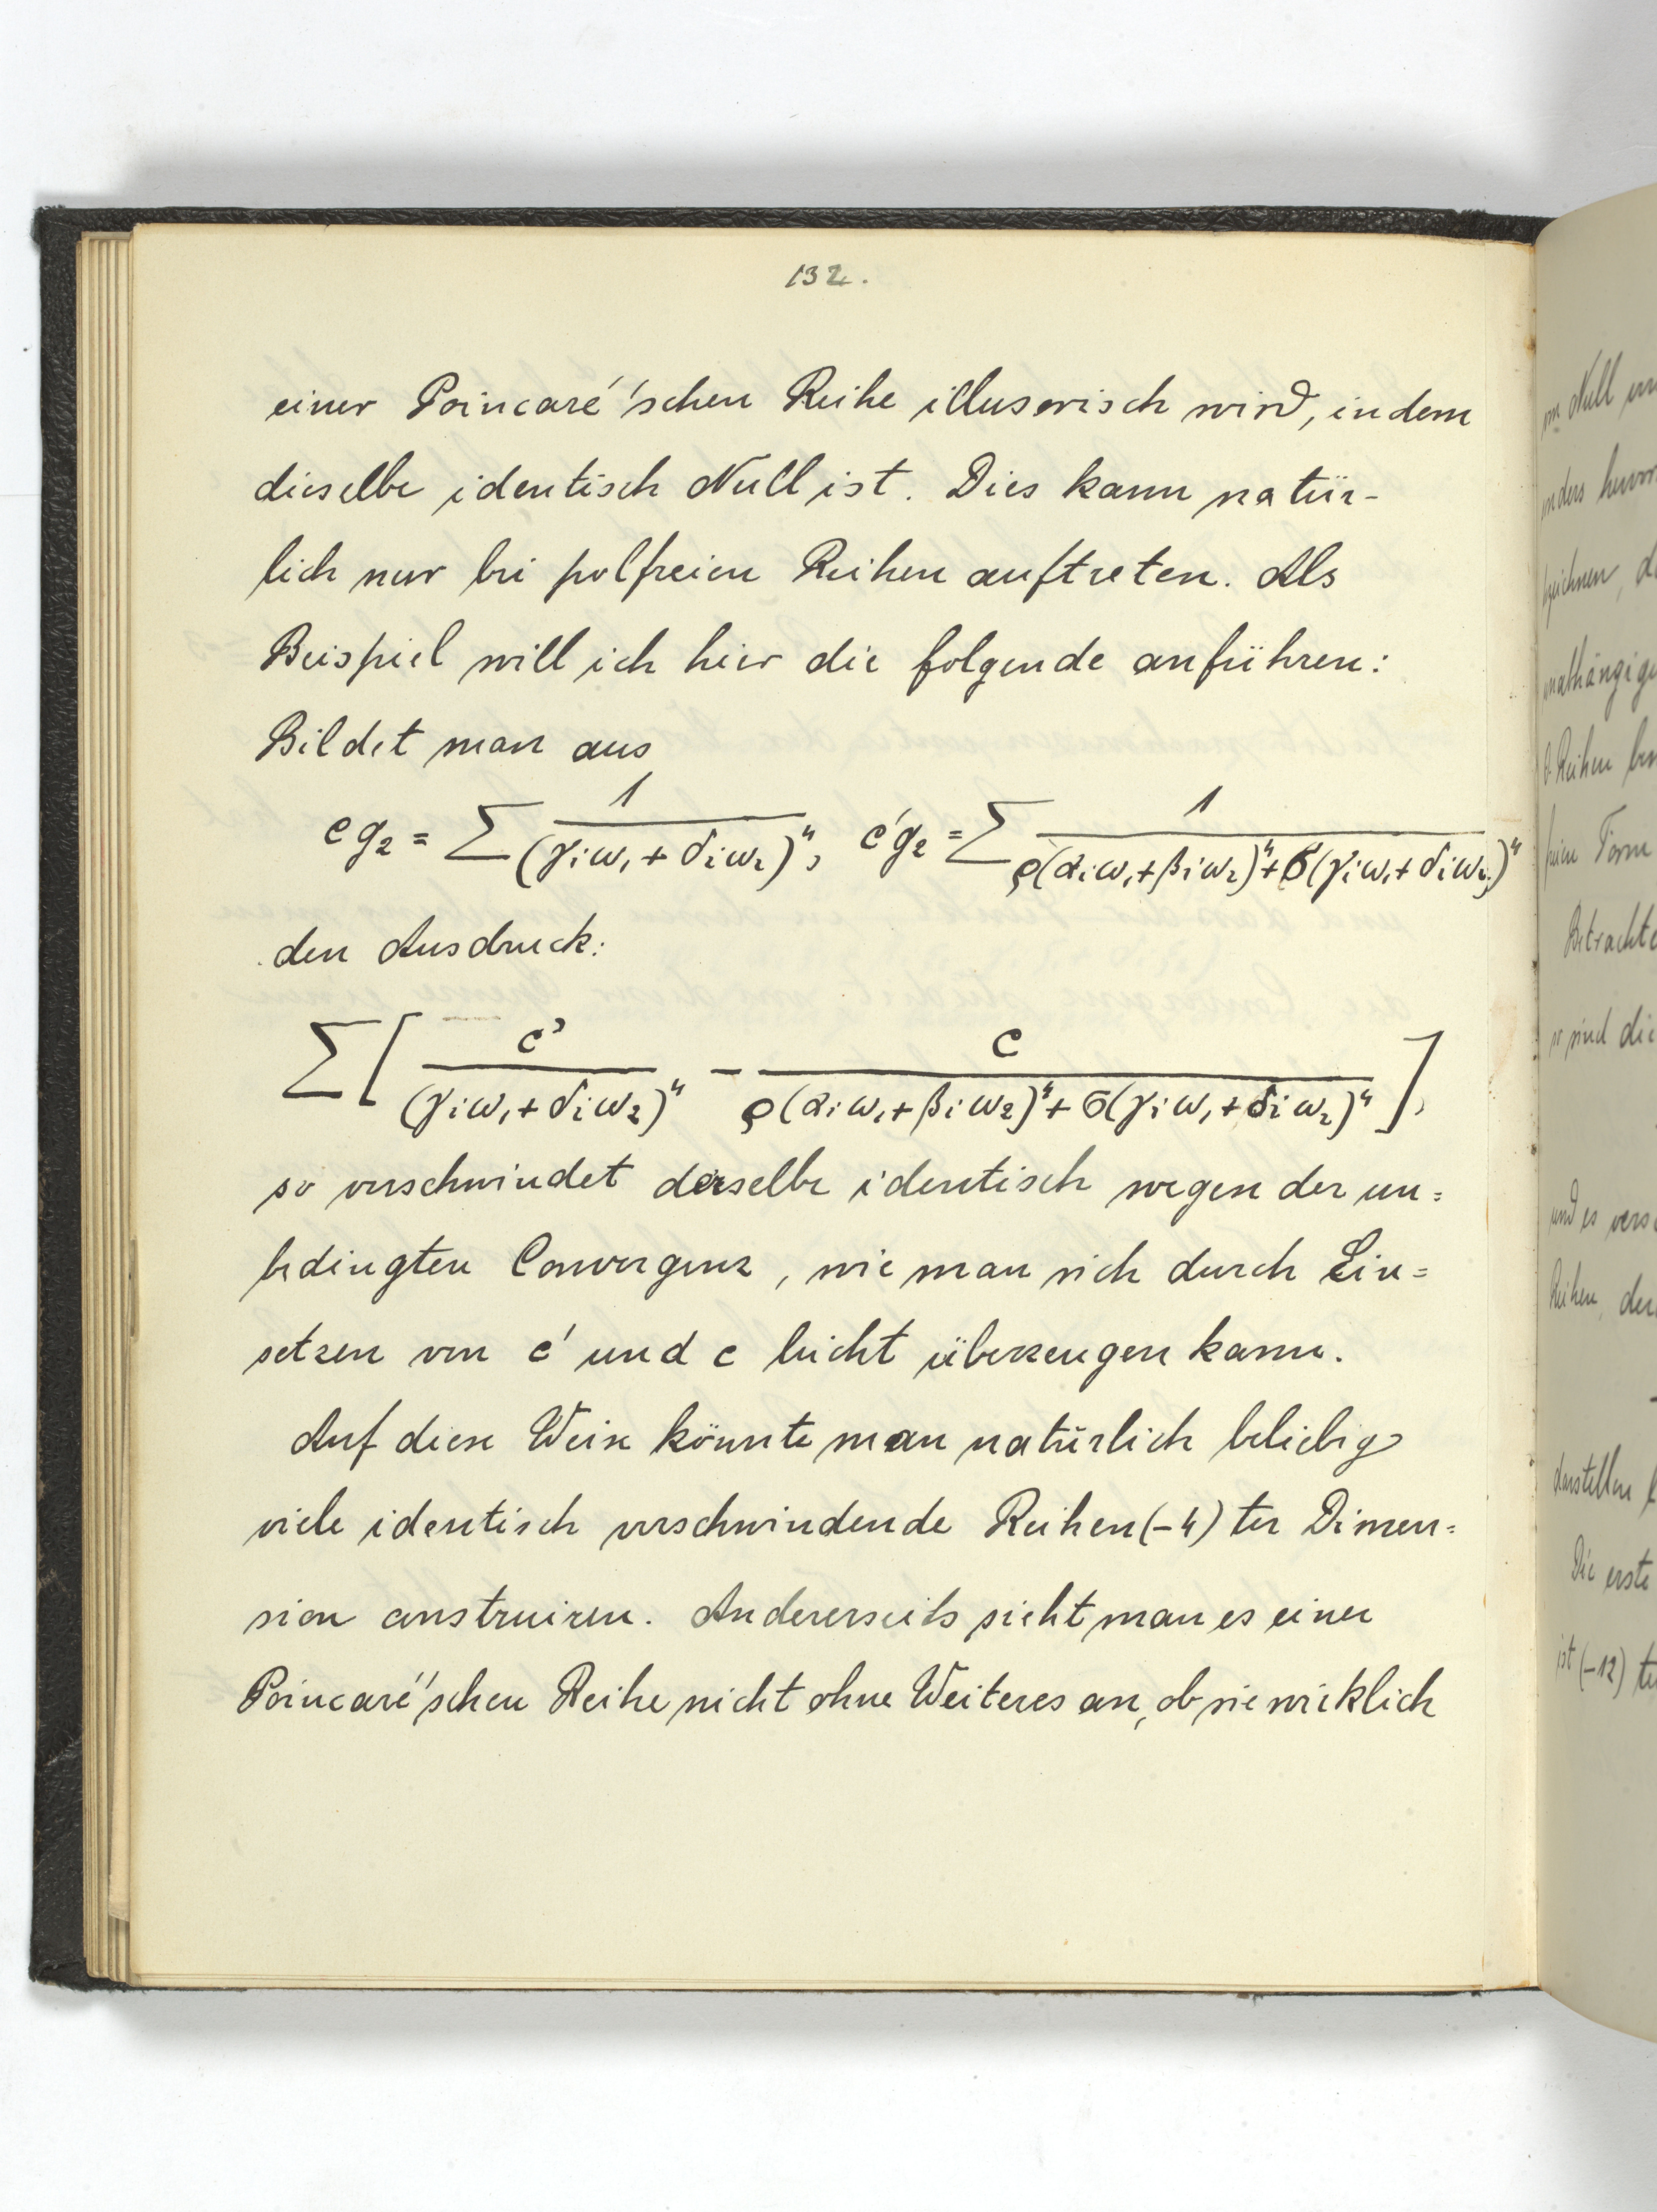 132.
einer Poincaré'schen Reihe illusorisch wird, indem
dieselbe identisch Null ist. Dies kann natür-
lich nur bei polfreien Reihen auftreten. Als
Beispiel will ich hier die folgende anführen:
Bildet man aus
c g₂ = ∑ 1/(γᵢω₁ + δᵢω₂)⁴, c'g₂ = ∑ 1/ρ(αᵢω₁+βᵢω₂)⁴+σ(γᵢω₁+δᵢω₂)⁴
den Ausdruck:
∑ [ c'/(γᵢω₁+δᵢω₂)⁴ − c/ρ(αᵢω₁+βᵢω₂)⁴+σ(γᵢω₁+δᵢω₂)⁴ ],
so verschwindet derselbe identisch wegen der un=
bedingten Convergenz, wie man sich durch Ein=
setzen von c' und c leicht überzeugen kann.
Auf diese Weise könnte man natürlich beliebig
viele identisch verschwindende Reihen (-4)ter Dimen=
sion construiren. Andererseits sieht man es einer
Poincaré'schen Reihe nicht ohne Weiteres an, ob sie wirklich
Null
Reihen
Form
Betrachte
sind die
und es
Reihen, der
darstellen
Die erste
ist (-12) te